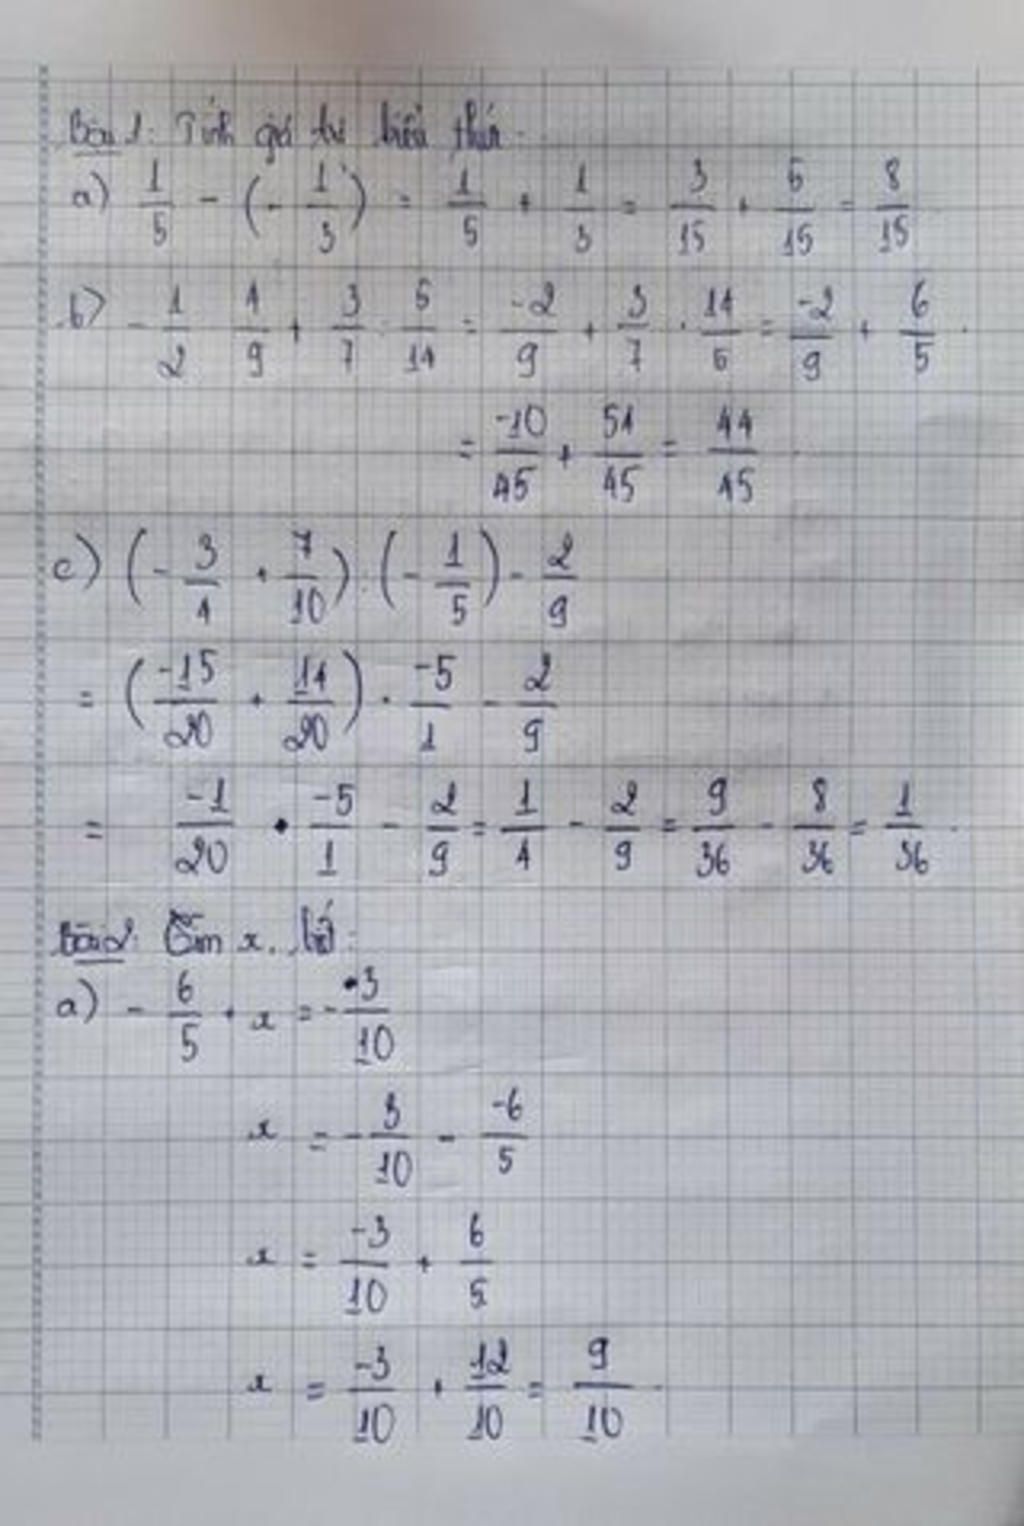 Bài 1: Tính giá trị biểu thức.
a) 1/5 - (-1/3) = 1/5 + 1/3 = 3/15 + 5/15 = 8/15
b) -1/2 . 4/9 + 3/7 : 5/14 = -2/9 + 3/7 . 14/5 = -2/9 + 6/5.
= -10/45 + 54/45 = 44/45.
c) (-3/4 + 7/10) : (-1/5) - 2/9
= (-15/20 + 14/20) . -5/1 - 2/9
= -1/20 . -5/1 - 2/9 = 1/4 - 2/9 = 9/36 - 8/36 = 1/36.
Bài 2: Tìm x, biết:
a) -6/5 + x = -3/10
x = -3/10 - -6/5
x = -3/10 + 6/5
x = -3/10 + 12/10 = 9/10.